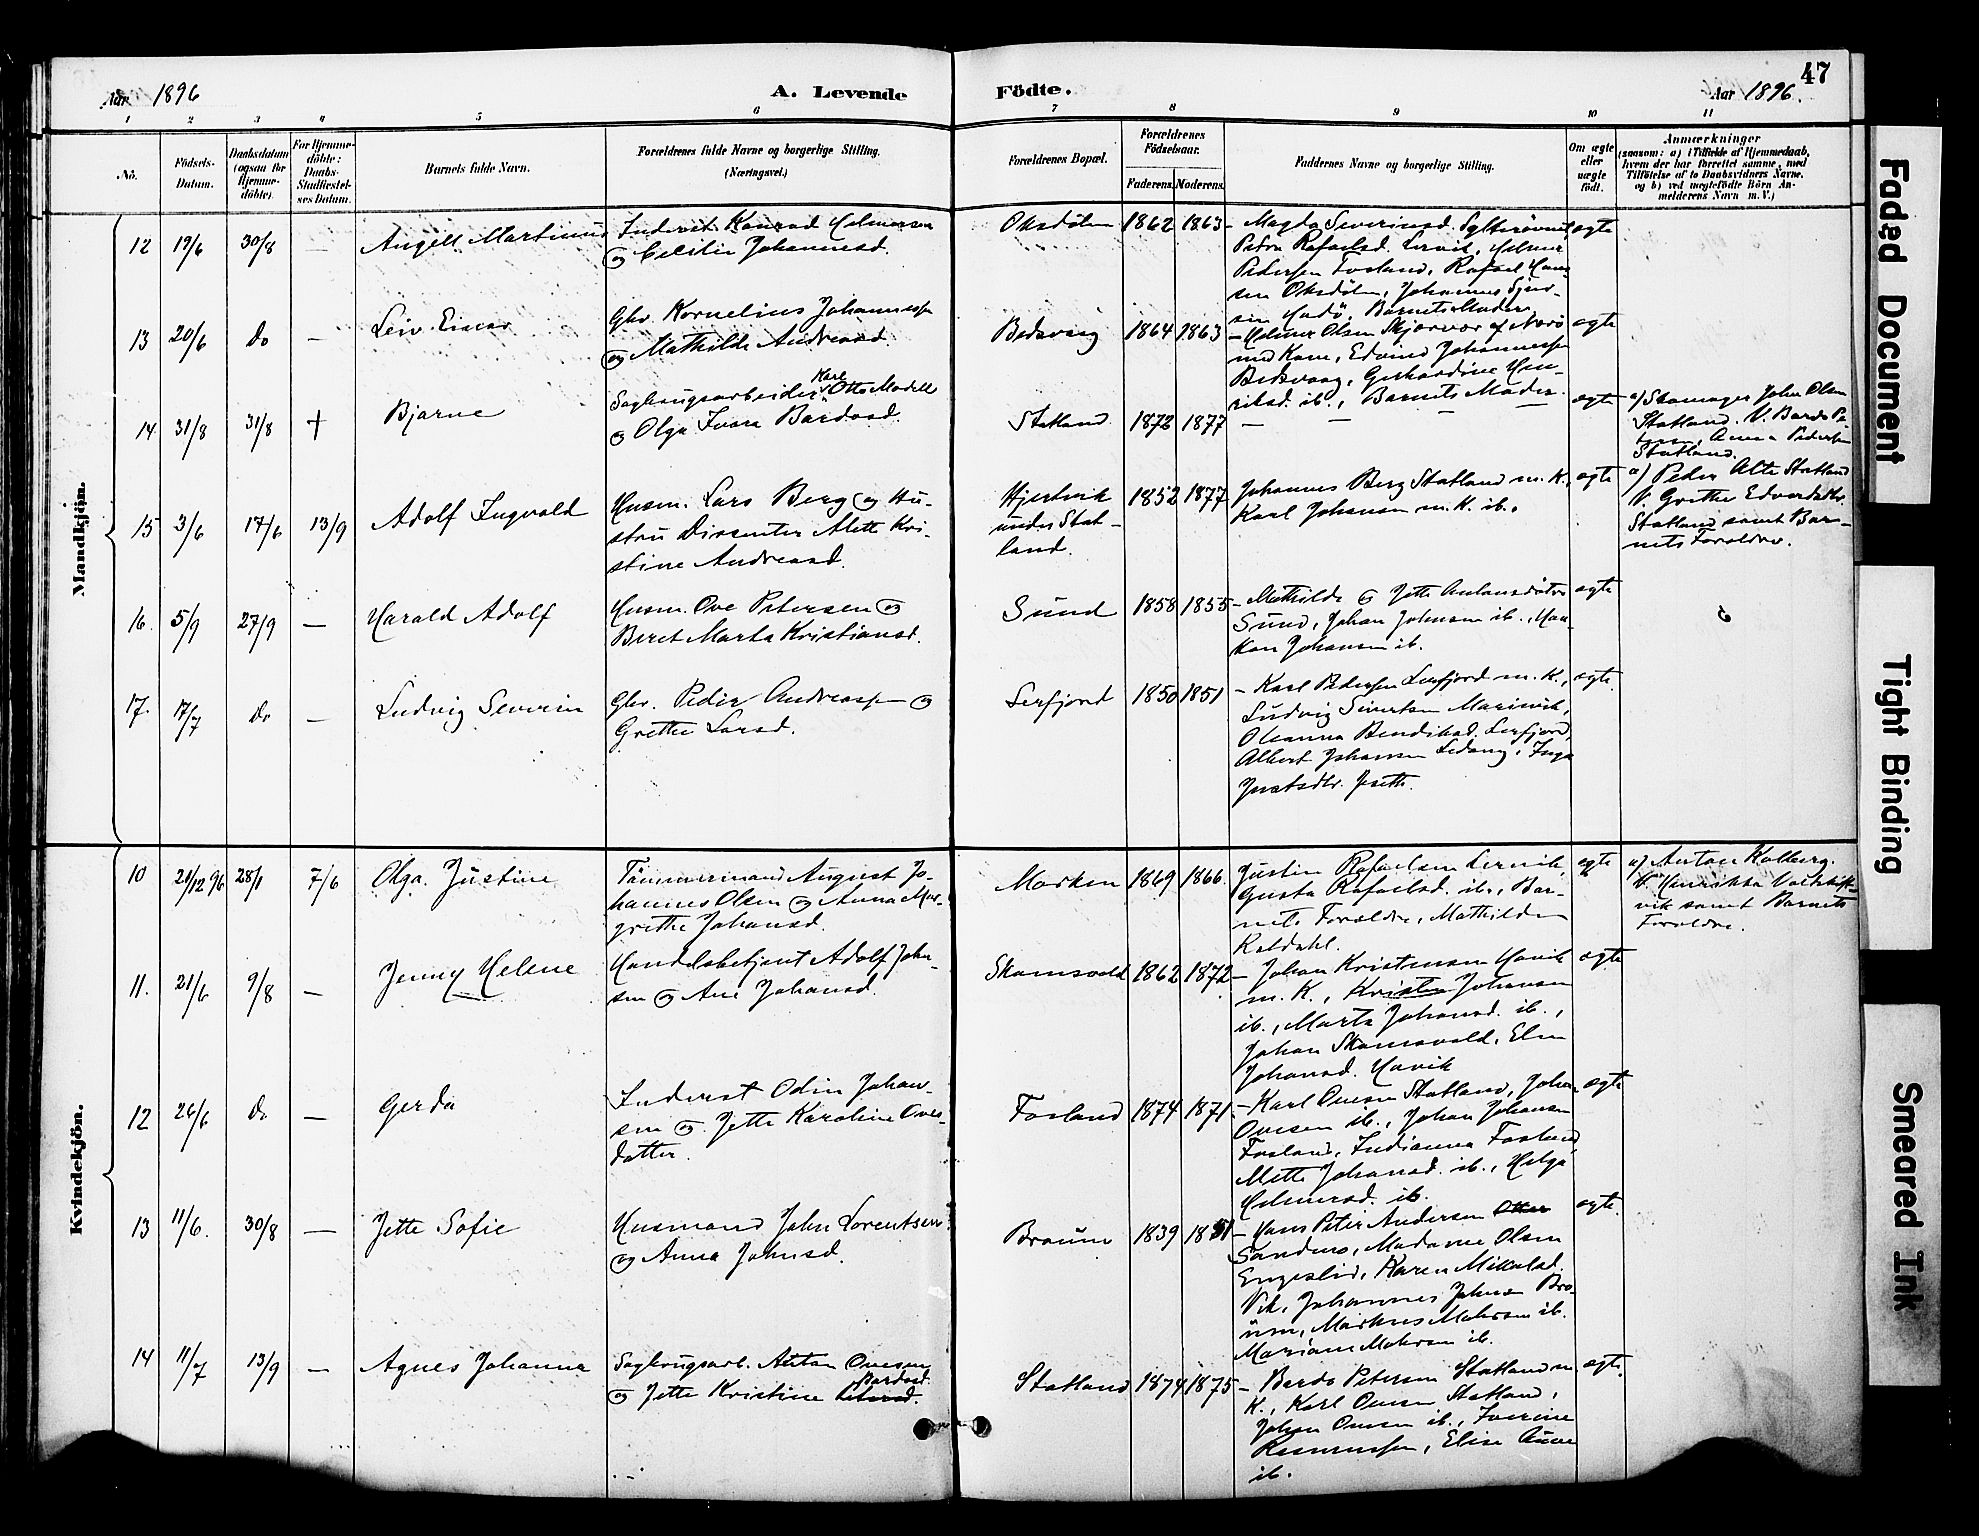 Aar 1896
A. Levende
Födte.
47
Aar 1896.
1 2 3 4 5 6 7 8 9 10 11
No.
Födsels-
Datum.
Daabsdatum
(ogsaa for
Hjemme-
döbte).
For Hjemme-
döbte:
Daabs-
Stadfæstel-
ses Datum.
Barnets fulde Navn.
Forældrenes fulde Navne og borgerlige Stilling.
(Næringsvei.)
Forældrenes Bopæl.
Forældrenes
Födselsaar.
Faderens. Moderens.
Faddernes Navne og borgerlige Stilling.
Om ægte
eller
uægte
födt.
Anmærkninger
(saasom: a) i Tilfælde af Hjemmedaab,
hvem der har forrettet samme, med
Tilföielse af to Daabsvidners Navne,
og b) ved uægtefödte Börn An-
melderens Navn m.V.)
Mandkjön.
12 19/6 30/8 — Angell Martinus
Inderst Konrad Helmersen
og Cecilie Johannesd.
Oksdölen 1862 1863
— Magda Severinsd.
Petra Rafaelsd. Lervik, Helmer
Pedersen Fosland, Rafael Han-
sen Oksdölen, Johannes
Barnets Moder.
ægte
13 20/6 Do —
Gbr. Kornelius Johannessen
og Mathilde Andreasd.
1864 1863
— Helmer Olsen Skjærvær af Nærö
med Kone, Edvind Johannessen
Gerhardine Hen-
riksd. ib., Barnets Moder.
ægte
14 31/8 31/8 + Bjarne
Sagbrugsarbeider Karl Otto Modell
og Olga Ivara Bardosd.
Statland 1872 1877
— — —
ægte
a) Skomager John Olsen
Statland. V. Bardo Pe-
tersen, Anna Pedersen
Statland.
15 3/6 17/6 13/9 Adolf Ingvald
Husm. Lars Berg og Hu-
stru Dissenter Alett Kri-
stine Andreasd.
Hjertvik
under Stat-
land.
1852 1877
Johannes Berg Statland m. K.,
Karl Johansen m. K. ib.
ægte
a) Peder Alte Statland
V. Grethe Edvardsdtr.
Statland samt Bar-
nets Forældre.
16. 5/9 27/9 — Harald Adolf
Husm. Ove Petersen og
Beret Marta Kristiansd.
Sund 1858 1855
— Mathilde og Jette Antonsdötre
Sund, Johan Johnsen ib., Haa-
kon Johansen ib.
ægte
17. 17/7 Do — Ludvig Severin
Gbr. Peder Andreassen og
Grethe Larsd.
Lerfjord 1850 1851
— Karl Pedersen Lerfjord m. K.,
Ludvig Sivertsen Marienvik,
Oleanna Bendiksd. Lerfjord,
Albert Johansen Ledang, Inga
ægte.
Kvindekjön.
10 21/12 96 28/1 7/6 Olga Justine
Tömmermand August Jo-
hannes Olsen og Anna Mar-
grethe Johansd.
Morken 1869 1866.
Justin Rafaelsen Lervik,
Gusta Rafaelsd. ib., Bar-
nets Forældre, Mathilde
Kaldahl.
ægte
a) Anton Kolberg.
V. Henrikka
vik samt Barnets
Forældre.
11. 21/6 9/8 — Jenny Helene
Handelsbetjent Adolf Johan-
sen og Ane Johansd.
Skamsvold 1862 1872
— Johan Kristensen Havik
m. K., Kristen Johansen
ib., Marta Johansd. ib.,
Johan Skamsvold, Elen
Johansd. Havik
ægte
12 26/6 Do — Gerda
Inderst Odin Johan-
sen og Jette Karoline Oves-
datter.
Fosland 1874 1871.
— Karl Ovesen Statland, Johan
Ovesen ib., Johan Johansen
Fosland, Indianna Fosland,
Mette Johansd. ib., Helga
Helmersd. ib.
ægte
13 11/6. 30/8 — Jette Sofie
Husmand John Lorentsen
og Anna Johnsd.
Braünn 1839 1851
— Hans Peter Andersen
Sandmo, Madame Olsen
Engeslid, Karen Mikalsd.
Vik, Johannes Johnsen Bra-
ünn, Markus Mohrsen ib.
Mariane Mohrsen ib.
ægte.
14 11/7 13/9 — Agnes Johanna
Sagbrugsarb. Anton Ovesen
og Jette Kristine Petersd. Bardosd.
Statland 1874 1875
— Bardo Petersen Statland m.
K., Karl Ovesen Statland,
Johan Ovesen ib., Iverine
Rasmussen, Elise Aune
ib.
ægte.
Faded Document
Tight Binding
Smeared Ink